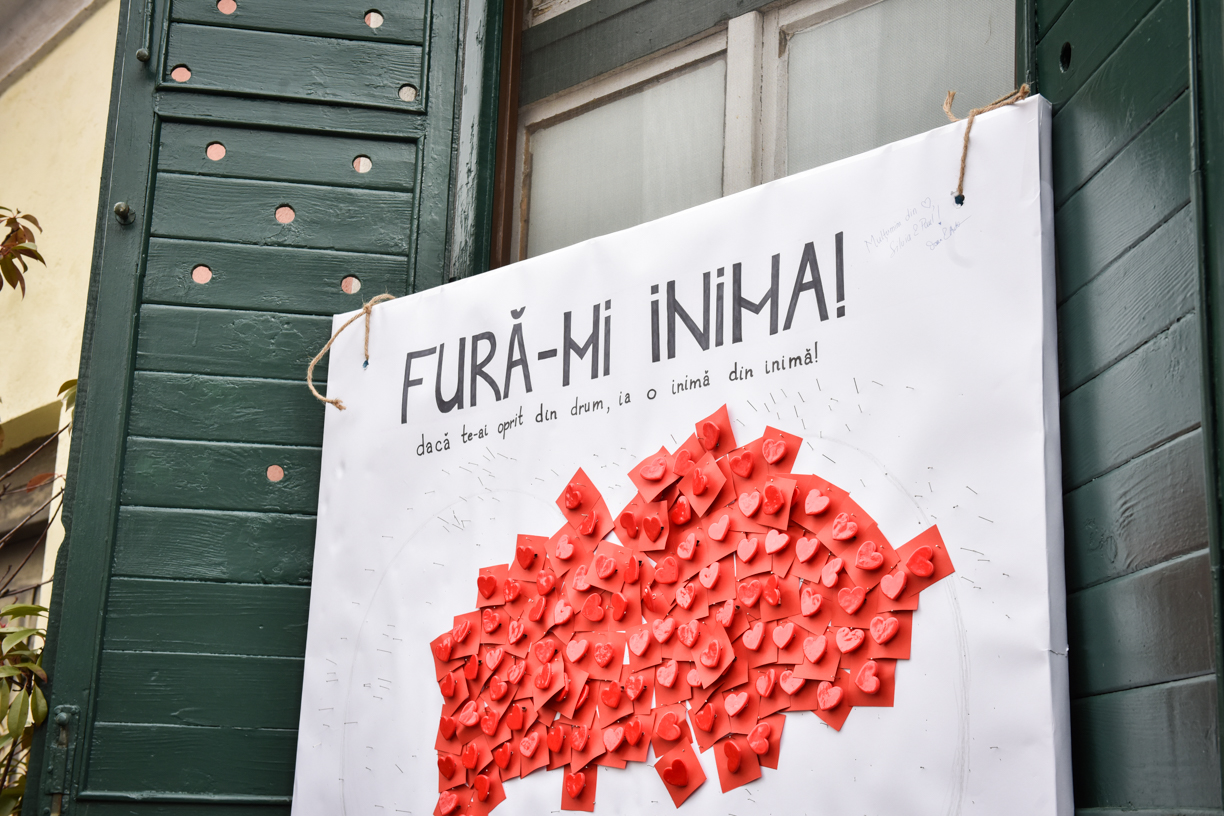 FURĂ-Mi iNiMA!
dacă te-ai oprit din drum, ia o inimă din inimă!
din